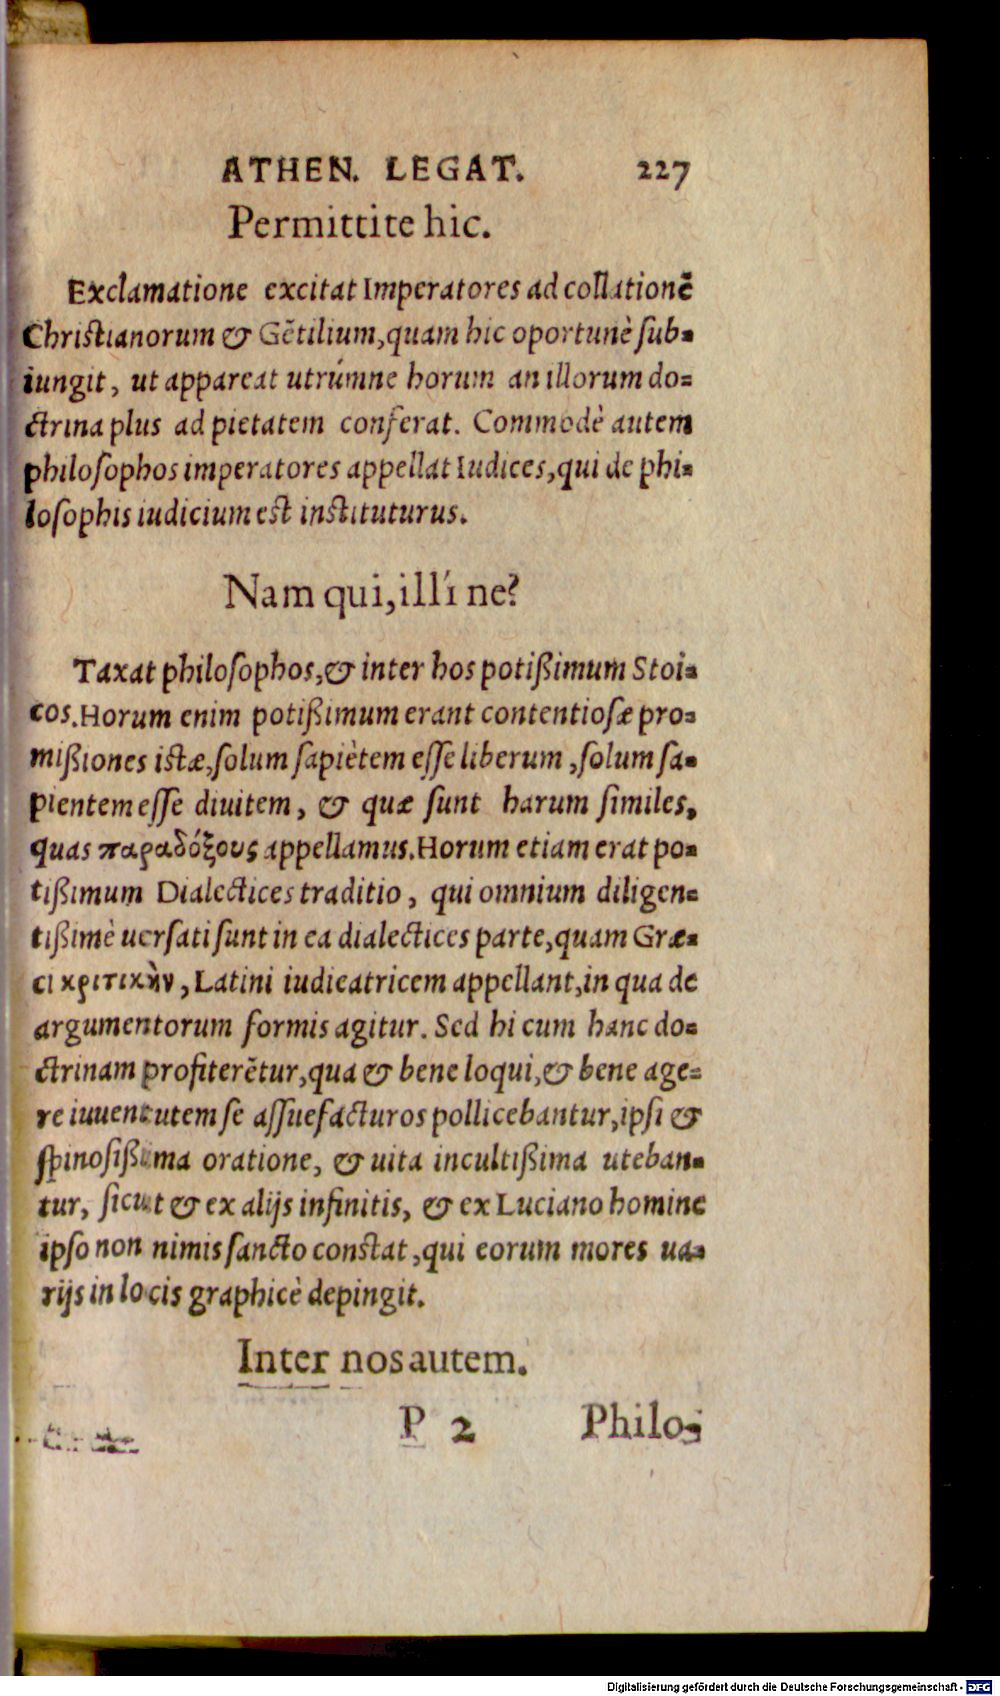 ATHEN. LEGAT. 227
Permittite hic.
Exclamatione excitat Imperatores ad collationē
Christianorum & Gētilium, quam hic oportunè ſub-
iungit, ut appareat utrúmne horum an illorum do-
ctrina plus ad pietatem conferat. Commodè autem
philoſophos imperatores appellat Iudices, qui de phi-
loſophis iudicium est instituturus.
Nam qui, illí ne?
Taxat philoſophos, & inter hos potißimum Stoi-
cos. Horum enim potißimum erant contentioſæ pro-
mißiones istæ, ſolum ſapiētem eſſe liberum, ſolum ſa-
pientem eſſe diuitem, & quæ ſunt harum ſimiles,
quas παραδόξους appellamus. Horum etiam erat po-
tißimum Dialectices traditio, qui omnium diligen-
tißimè uerſati ſunt in ea dialectices parte, quam Græ-
ci κριτικὴν, Latini iudicatricem appellant, in qua de
argumentorum formis agitur. Sed hi cum hanc do-
ctrinam profiterētur, qua & bene loqui, & bene age-
re iuuentutem ſe aſſuefacturos pollicebantur, ipſi &
ſpinoſißima oratione, & uita incultißima uteban-
tur, ſicut & ex alijs infinitis, & ex Luciano homine
ipſo non nimis ſancto constat, qui eorum mores ua-
rijs in locis graphicè depingit.
Inter nos autem.
P 2 Philo-
Digitalisierung gefördert durch die Deutsche Forschungsgemeinschaft - DFG